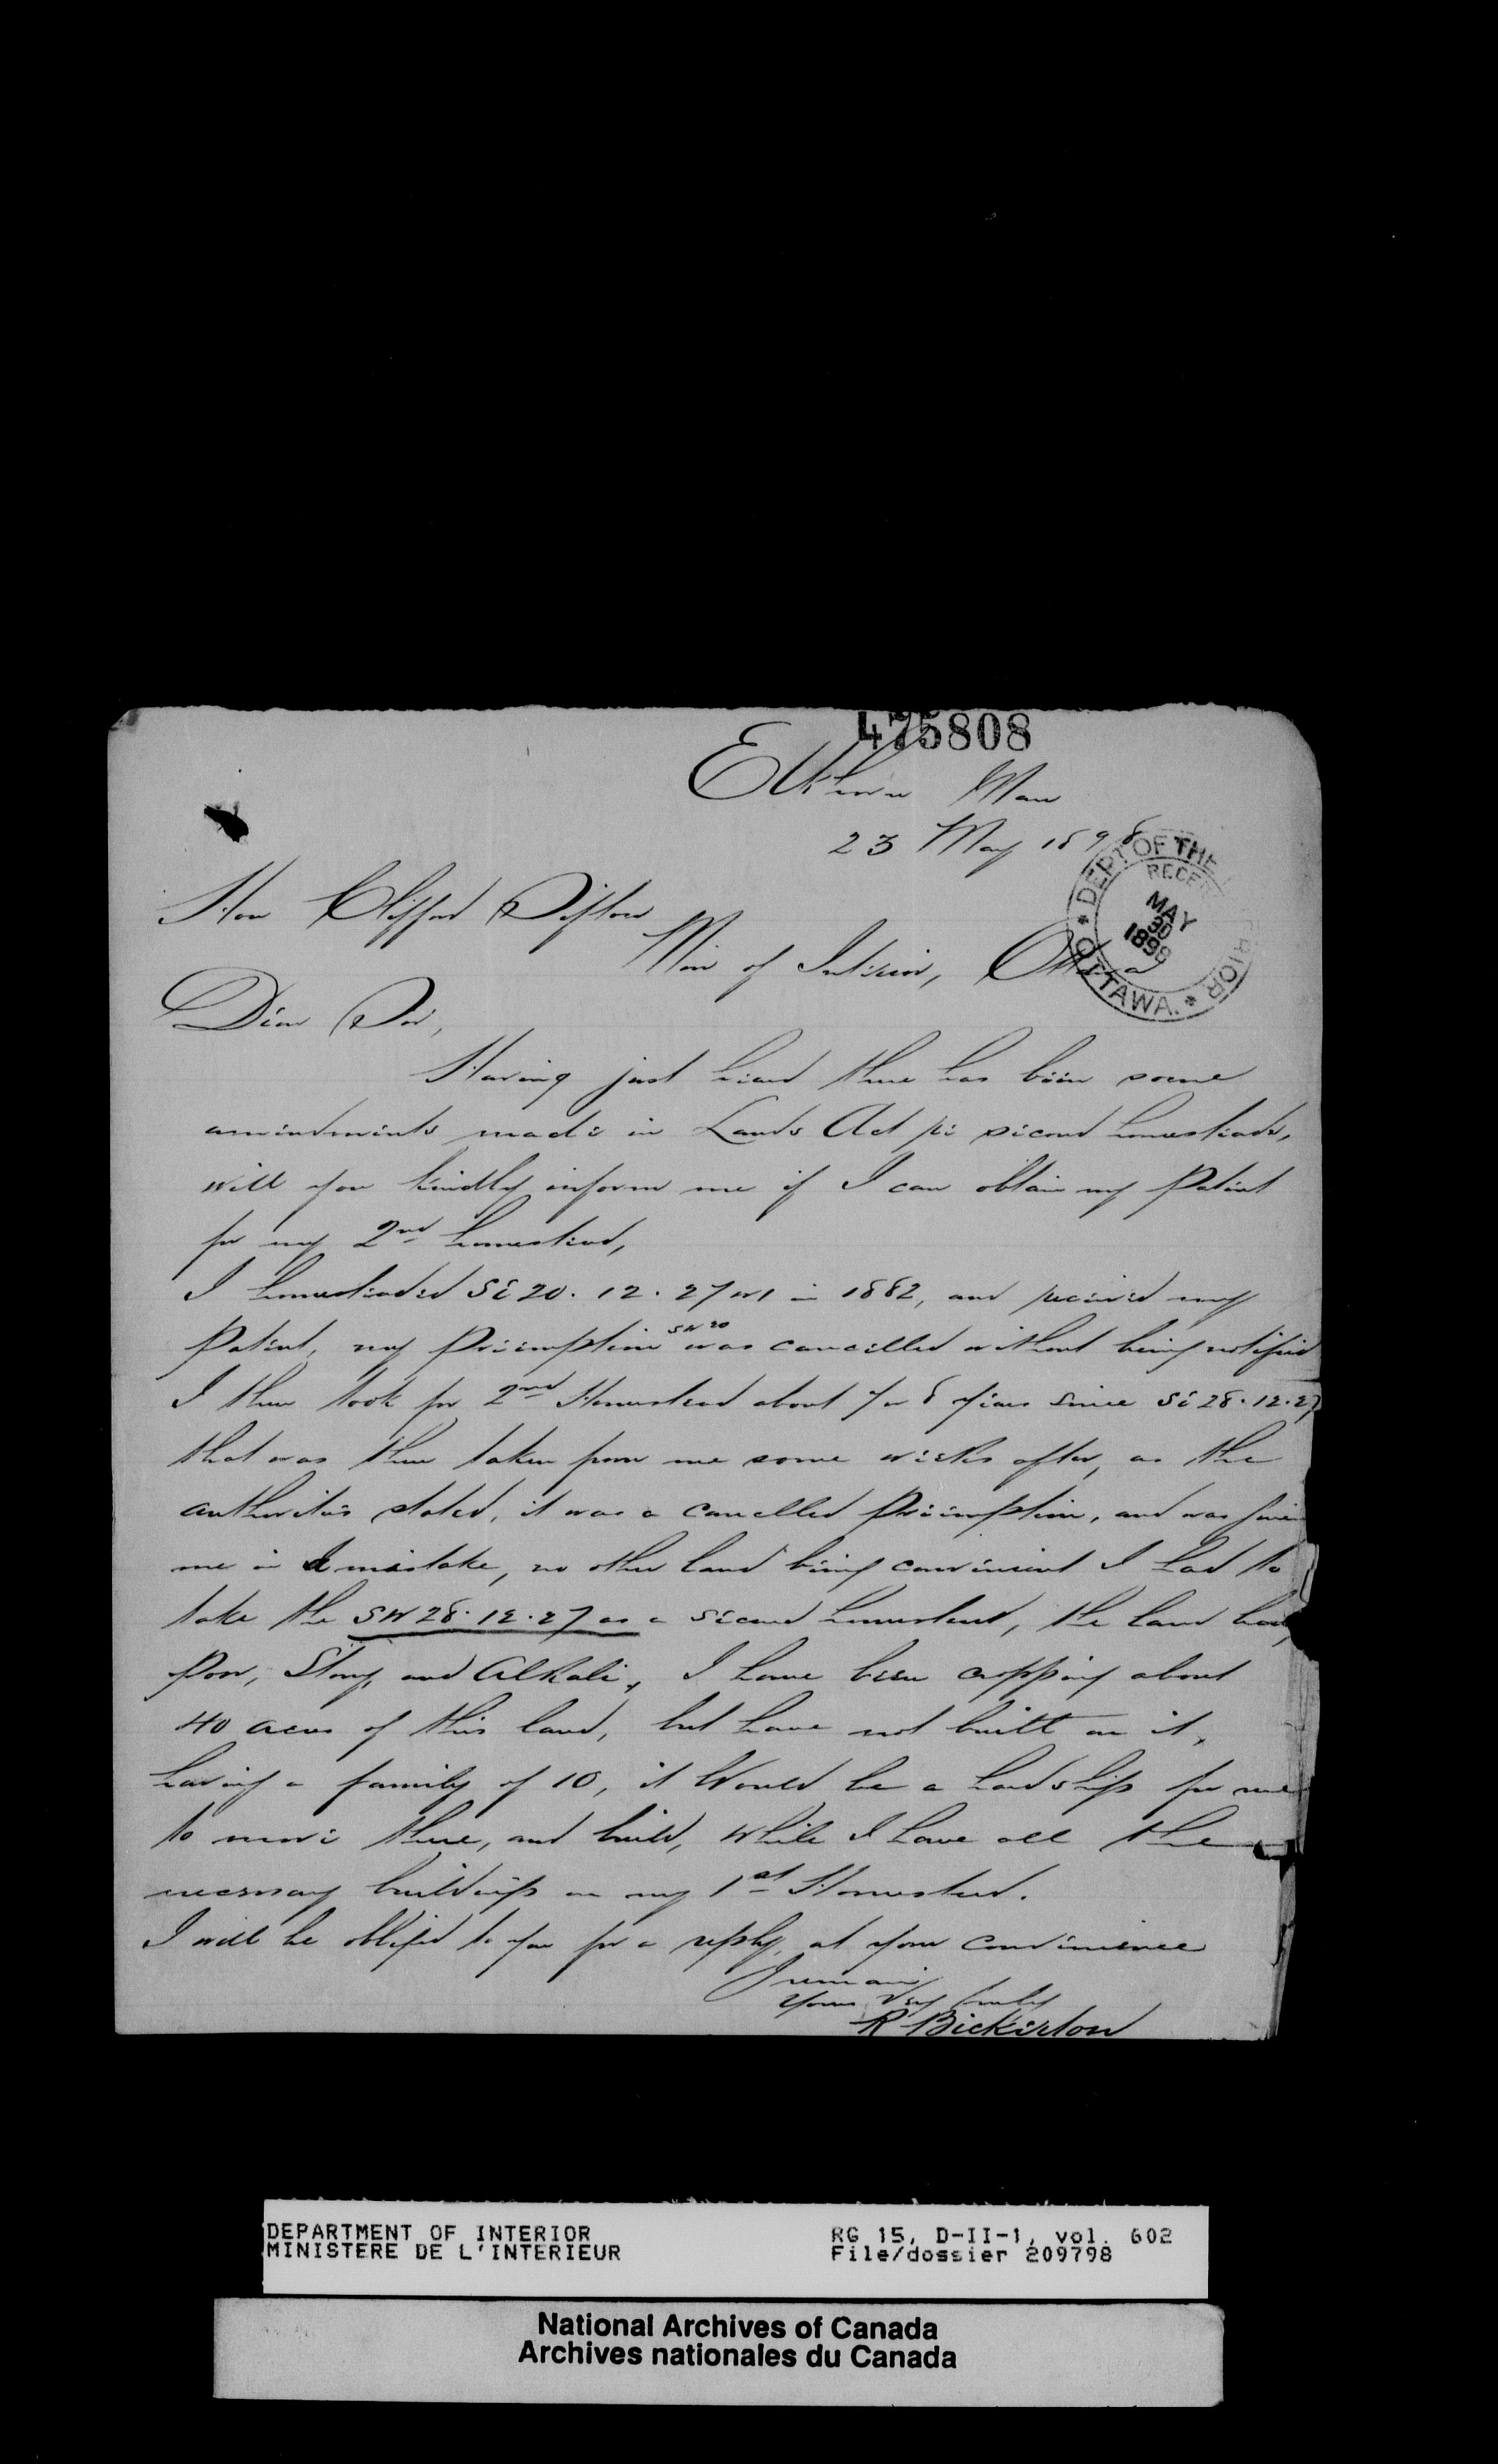 475808
Elkhorn Man
23 May 1898
DEPT OF THE INTERIOR
RECEIVED
MAY
30
1898
* OTTAWA. *
Hon Clifford Sifton
Min of Interior, Ottawa
Dear Sir,
Having just heard there has been some
amendments made in Lands Act re second homesteads,
will you kindly inform me if I can obtain my Patent
for my 2nd homestead,
I homesteaded SE 20. 12. 27 W1 in 1882, and received my
Patent, my Preemption SW 20 was cancelled without being notified
I then took for 2nd Homestead about 7 or 8 years since SE 28. 12. 27
that was then taken from me some weeks after, as the
authorities stated, it was a cancelled Preemption, and was given
me in a mistake, no other land being convenient I had to
take the SW 28. 12. 27 as a second homestead, the land being
Poor, Stony, and Alkali, I have been cropping about
40 acres of this land, but have not built on it,
having a family of 10, it Would be a hardship for me
to move there, and build, while I have all the
necessary buildings on my 1st Homestead.
I will be obliged to you for a reply, at your convenience
I remain
Yours very truly
R Bickerton
DEPARTMENT OF INTERIOR
MINISTERE DE L'INTERIEUR
RG 15, D-II-1, vol. 602
File/dossier 209798
National Archives of Canada
Archives nationales du Canada